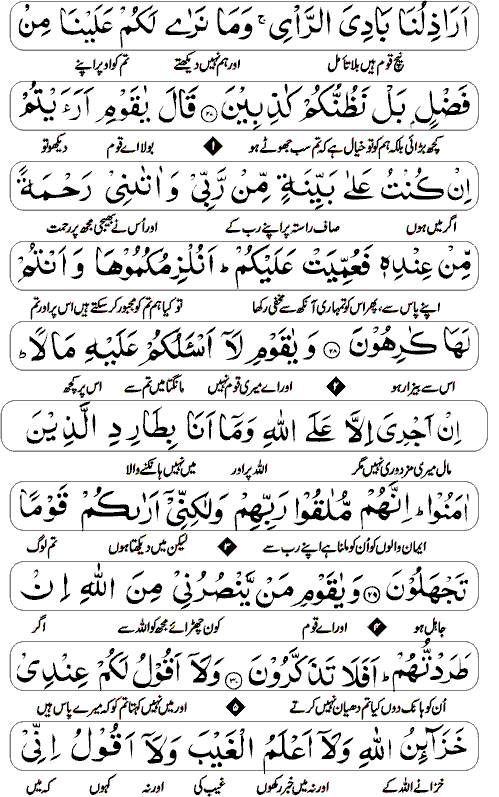 اَرَاذِلُنَا بَادِیَ الرَّاْیِ ۚ وَمَا نَرٰی لَکُمْ عَلَیْنَا مِنْ
نیچ قوم ہیں بلا تامل اور ہم نہیں دیکھتے تم کو اوپر اپنے
فَضْلٍۭ بَلْ نَظُنُّکُمْ کٰذِبِیْنَ ۲۷ قَالَ یٰقَوْمِ اَرَءَیْتُمْ
کچھ بڑائی بلکہ ہم کو تو خیال ہے کہ تم سب جھوٹے ہو ۱ بولا اے قوم دیکھو تو
اِنْ کُنْتُ عَلٰی بَیِّنَۃٍ مِّنْ رَّبِّیْ وَاٰتٰىنِیْ رَحْمَۃً
اگر میں ہوں صاف راستہ پر اپنے رب کے اور اُس نے بھیجی مجھ پر رحمت
مِّنْ عِنْدِہٖ فَعُمِّیَتْ عَلَیْکُمْ ؕ اَنُلْزِمُکُمُوْھَا وَاَنْتُمْ
اپنے پاس سے، پھر اس کو تمہاری آنکھ سے مخفی رکھا تو کیا ہم تم کو مجبور کر سکتے ہیں اس پر اور تم
لَھَا کٰرِھُوْنَ ۲۸ وَیٰقَوْمِ لَاۤ اَسْئَلُکُمْ عَلَیْہِ مَالًا ؕ
اس سے بیزار ہو ۲ اور اے میری قوم نہیں مانگتا میں تم سے اس پر کچھ
اِنْ اَجْرِیَ اِلَّا عَلَی اللّٰہِ وَمَاۤ اَنَا بِطَارِدِ الَّذِیْنَ
مال میری مزدوری نہیں مگر اللہ پر اور میں نہیں ہانکنے والا
اٰمَنُوْا ؕ اِنَّھُمْ مُّلٰقُوْا رَبِّھِمْ وَلٰکِنِّیْۤ اَرٰىکُمْ قَوْمًا
ایمان والوں کو اُن کو ملنا ہے اپنے رب سے ۳ لیکن میں دیکھتا ہوں تم لوگ
تَجْھَلُوْنَ ۲۹ وَیٰقَوْمِ مَنْ یَّنْصُرُنِیْ مِنَ اللّٰہِ اِنْ
جاہل ہو ۴ اور اے قوم کون چھڑائے مجھ کو اللہ سے اگر
طَرَدْتُّھُمْ ؕ اَفَلَا تَذَکَّرُوْنَ ۳۰ وَلَاۤ اَقُوْلُ لَکُمْ عِنْدِیْ
اُن کو ہانک دوں کیا تم دھیان نہیں کرتے ۵ اور میں نہیں کہتا تم کو کہ میرے پاس ہیں
خَزَآئِنُ اللّٰہِ وَلَاۤ اَعْلَمُ الْغَیْبَ وَلَاۤ اَقُوْلُ اِنِّیْ
خزانے اللہ کے اور نہ میں خبر رکھوں غیب کی اور نہ کہوں کہ میں